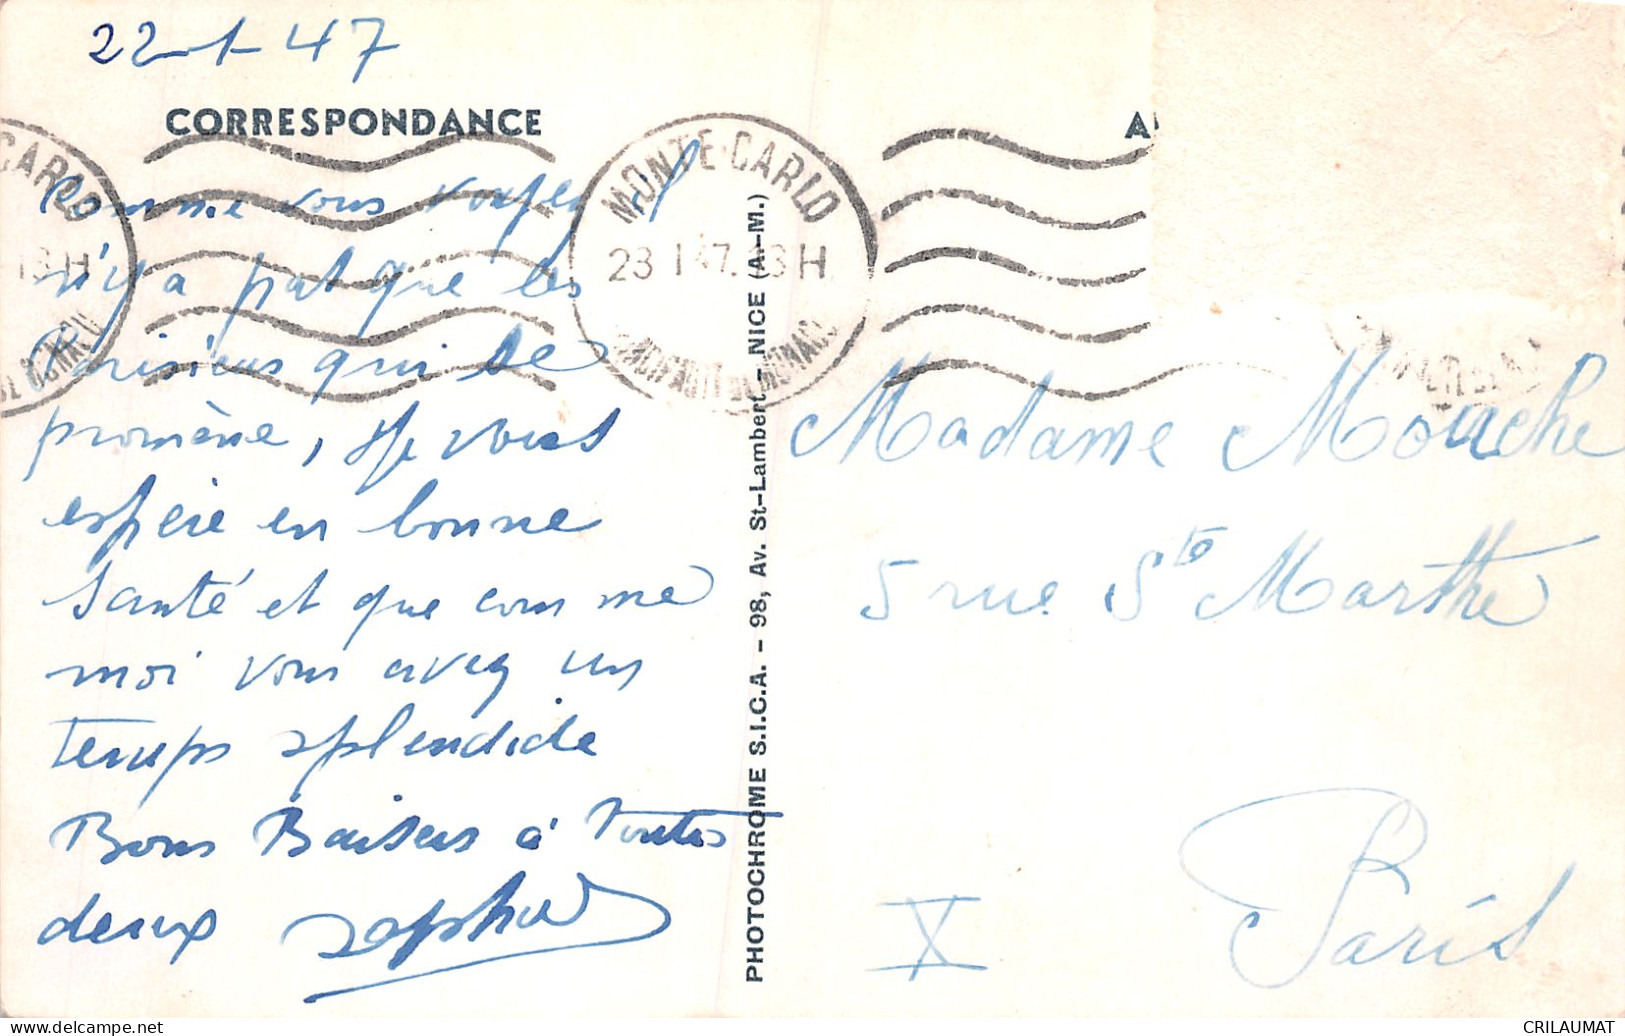 22-1-47
CORRESPONDANCE
Comme vous voyez il
n'y a pas que les
Parisiens qui se
promène, Je vous
espère en bonne
Santé et que comme
moi vous avez un
temps splendide
Bons Baisers à toutes
deux
MONTE-CARLO
23 1 47. 18 H
PRINCIPAUTÉ DE MONACO
CARLO
18 H
DE MONACO
PHOTOCHROME S.I.C.A. - 98, Av. St-Lambert - NICE (A-M.)
Madame Mouche
5 rue Ste Marthe
Paris
X
CRILAUMAT